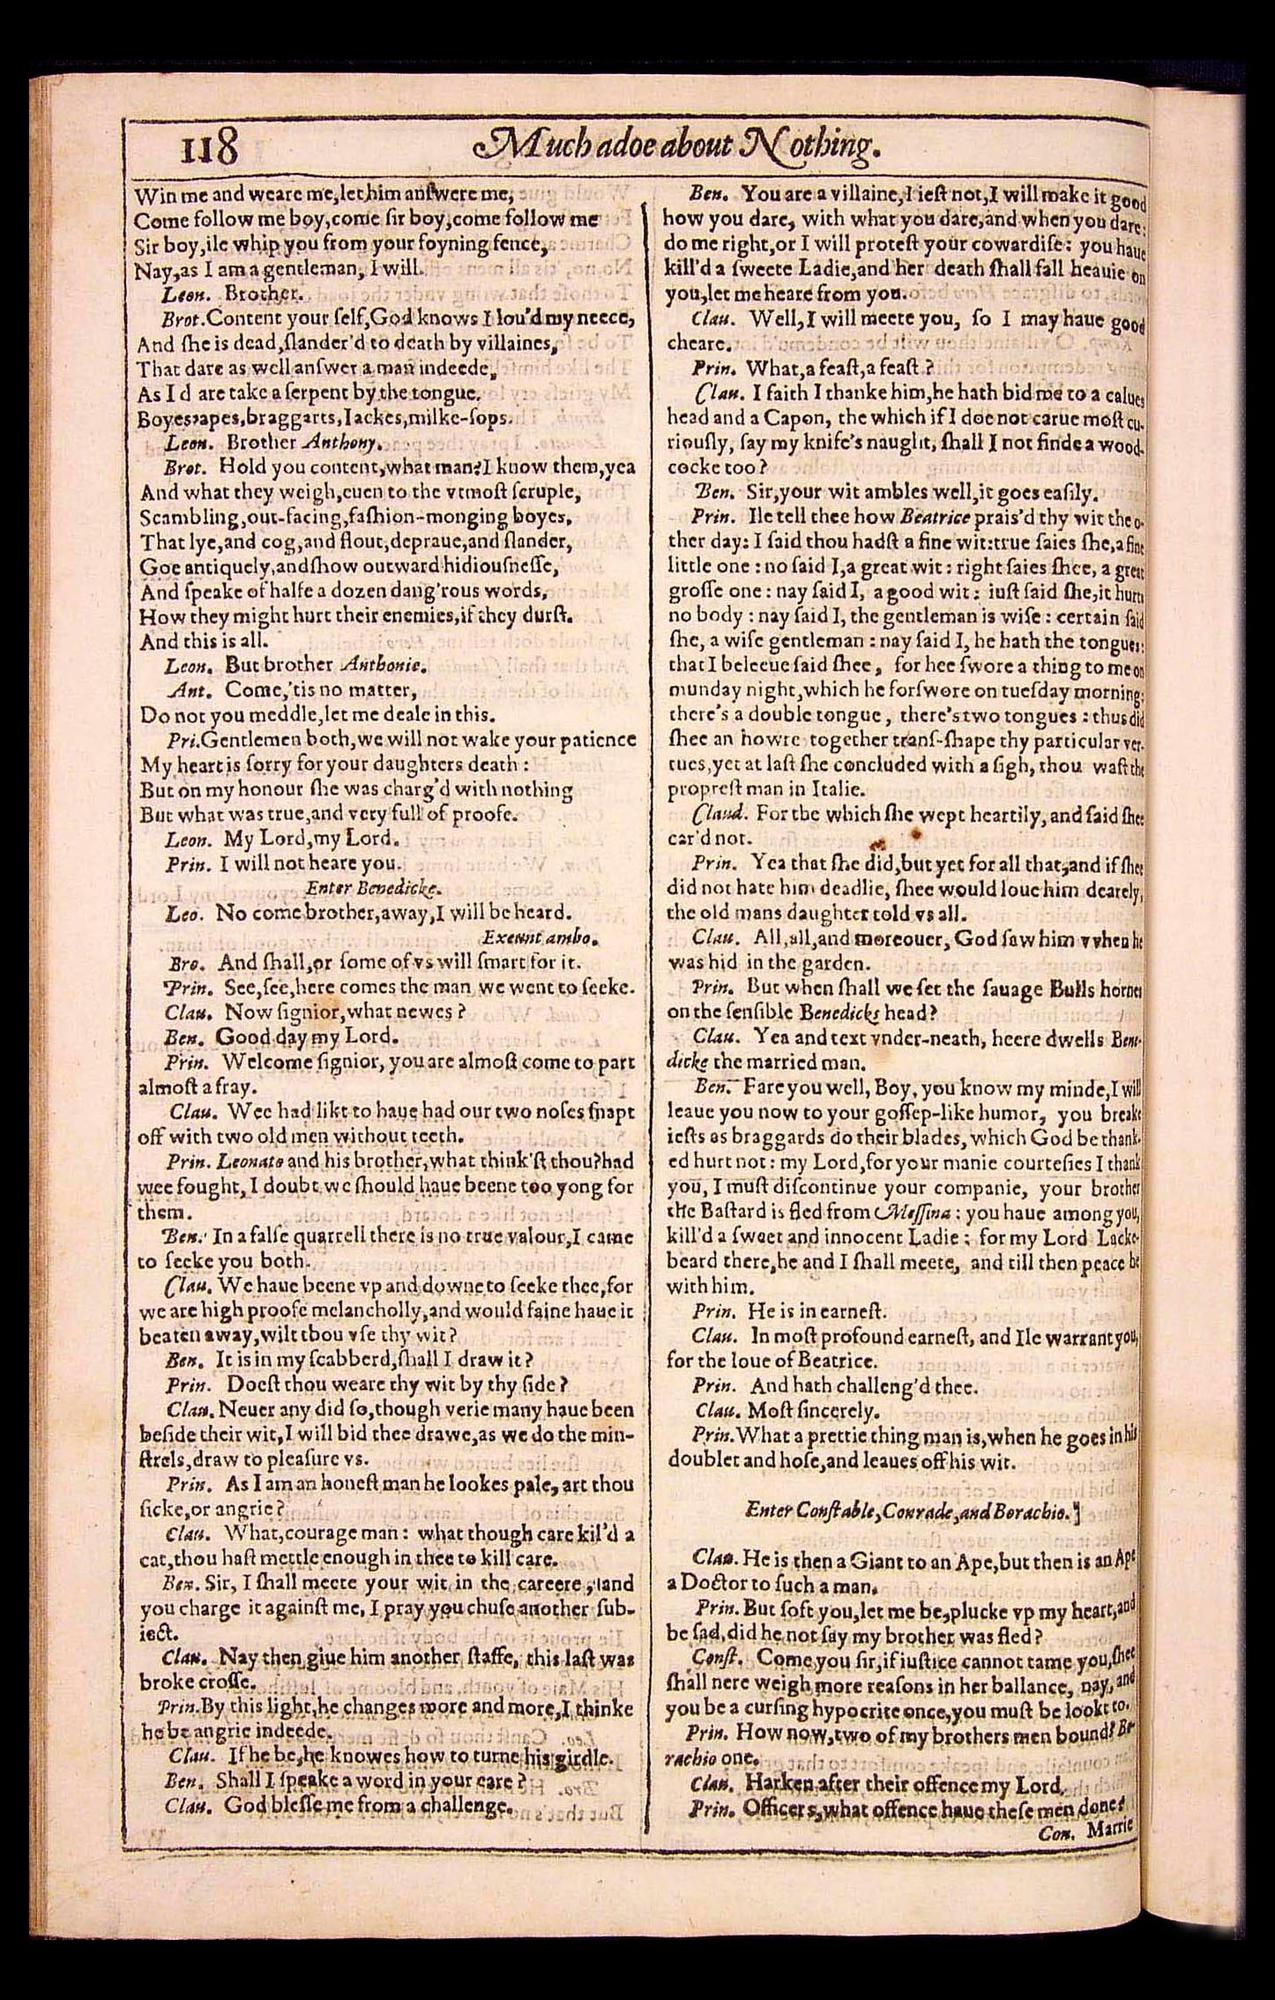 118
Much adoe about Nothing.
Win me and weare me,let him answere me,
Come follow me boy,come sir boy,come follow me
Sir boy,ile whip you from your foyning fence,
Nay,as I am a gentleman, I will.
Leon. Brother.
Brot.Content your self,God knows I lou'd my neece,
And she is dead,slander'd to death by villaines,
That dare as well answer a man indeede,
As I d are take a serpent by the tongue.
Boyes,apes,braggarts,Iackes,milke-sops.
Leon. Brother Anthony.
Brot. Hold you content,what man? I know them,yea
And what they weigh,euen to the vtmost scruple,
Scambling,out-facing,fashion-monging boyes,
That lye,and cog,and flout,depraue,and slander,
Goe antiquely,and show outward hidiousnesse,
And speake of halfe a dozen dang'rous words,
How they might hurt their enemies,if they durst.
And this is all.
Leon. But brother Anthonie.
Ant. Come,'tis no matter,
Do not you meddle,let me deale in this.
Pri.Gentlemen both,we will not wake your patience
My heart is sorry for your daughters death :
But on my honour she was charg'd with nothing
But what was true,and very full of proofe.
Leon. My Lord,my Lord.
Prin. I will not heare you.
Enter Benedicke.
Leo. No come brother,away,I will be heard.
Exeunt ambo.
Bro. And shall,or some of vs will smart for it.
Prin. See,see,here comes the man we went to seeke.
Clau. Now signior,what newes ?
Ben. Good day my Lord.
Prin. Welcome signior, you are almost come to part
almost a fray.
Clau. Wee had likt to haue had our two noses snapt
off with two old men without teeth.
Prin. Leonato and his brother,what think'st thou?had
wee fought, I doubt we should haue beene too yong for
them.
Ben. In a false quarrell there is no true valour,I came
to seeke you both.
Clau. We haue beene vp and downe to seeke thee,for
we are high proofe melancholly,and would faine haue it
beaten away,wilt thou vse thy wit ?
Ben. It is in my scabberd,shall I draw it ?
Prin. Doest thou weare thy wit by thy side ?
Clau. Neuer any did so,though verie many haue been
beside their wit,I will bid thee drawe,as we do the min-
strels,draw to pleasure vs.
Prin. As I am an honest man he lookes pale, art thou
sicke,or angrie ?
Clau. What,courage man : what though care kil'd a
cat,thou hast mettle enough in thee to kill care.
Ben. Sir, I shall meete your wit in the careere, and
you charge it against me, I pray you chuse another sub-
iect.
Clau. Nay then giue him another staffe, this last was
broke crosse.
Prin.By this light,he changes more and more,I thinke
he be angrie indeede.
Clau. If he be,he knowes how to turne his girdle.
Ben. Shall I speake a word in your eare ?
Clau. God blesse me from a challenge.
Ben. You are a villaine,I iest not,I will make it good
how you dare, with what you dare,and when you dare:
do me right,or I will protest your cowardise : you haue
kill'd a sweete Ladie,and her death shall fall heauie on
you,let me heare from you.
Clau. Well,I will meete you, so I may haue good
cheare.
Prin. What,a feast,a feast ?
Clau. I faith I thanke him,he hath bid me to a calues
head and a Capon, the which if I doe not carue most cu-
riously, say my knife's naught, shall I not finde a wood-
cocke too ?
Ben. Sir,your wit ambles well,it goes easily.
Prin. Ile tell thee how Beatrice prais'd thy wit the o-
ther day: I said thou hadst a fine wit:true saies she,a fine
little one : no said I,a great wit : right saies shee, a great
grosse one : nay said I, a good wit : iust said she,it hurts
no body : nay said I, the gentleman is wise : certain said
she, a wise gentleman : nay said I, he hath the tongues:
that I beleeue said shee, for hee swore a thing to me on
munday night,which he forswore on tuesday morning:
there's a double tongue, there's two tongues : thus did
shee an howre together trans-shape thy particular ver-
tues,yet at last she concluded with a sigh, thou wast the
proprest man in Italie.
Claud. For the which she wept heartily, and said shee
car'd not.
Prin. Yea that she did,but yet for all that,and if shee
did not hate him deadlie, shee would loue him dearely,
the old mans daughter told vs all.
Clau. All,all,and moreouer, God saw him vvhen he
was hid in the garden.
Prin. But when shall we set the sauage Bulls hornes
on the sensible Benedicks head ?
Clau. Yea and text vnder-neath, heere dwells Bene-
dicke the married man.
Ben. Fare you well, Boy, you know my minde,I will
leaue you now to your gossep-like humor, you breake
iests as braggards do their blades, which God be thank-
ed hurt not : my Lord,for your manie courtesies I thank
you, I must discontinue your companie, your brother
the Bastard is fled from Messina : you haue among you,
kill'd a sweet and innocent Ladie : for my Lord Lacke-
beard there,he and I shall meete, and till then peace be
with him.
Prin. He is in earnest.
Clau. In most profound earnest, and Ile warrant you,
for the loue of Beatrice.
Prin. And hath challeng'd thee.
Clau. Most sincerely.
Prin.What a prettie thing man is,when he goes in his
doublet and hose,and leaues off his wit.
Enter Constable,Conrade,and Borachio.
Clau. He is then a Giant to an Ape,but then is an Ape
a Doctor to such a man.
Prin. But soft you,let me be,plucke vp my heart,and
be sad,did he not say my brother was fled ?
Const. Come you sir,if iustice cannot tame you,shee
shall nere weigh more reasons in her ballance, nay, and
you be a cursing hypocrite once,you must be lookt to.
Prin. How now,two of my brothers men bound? Bo-
rachio one.
Clau. Harken after their offence my Lord.
Prin. Officers,what offence haue these men done?
Con. Marrie